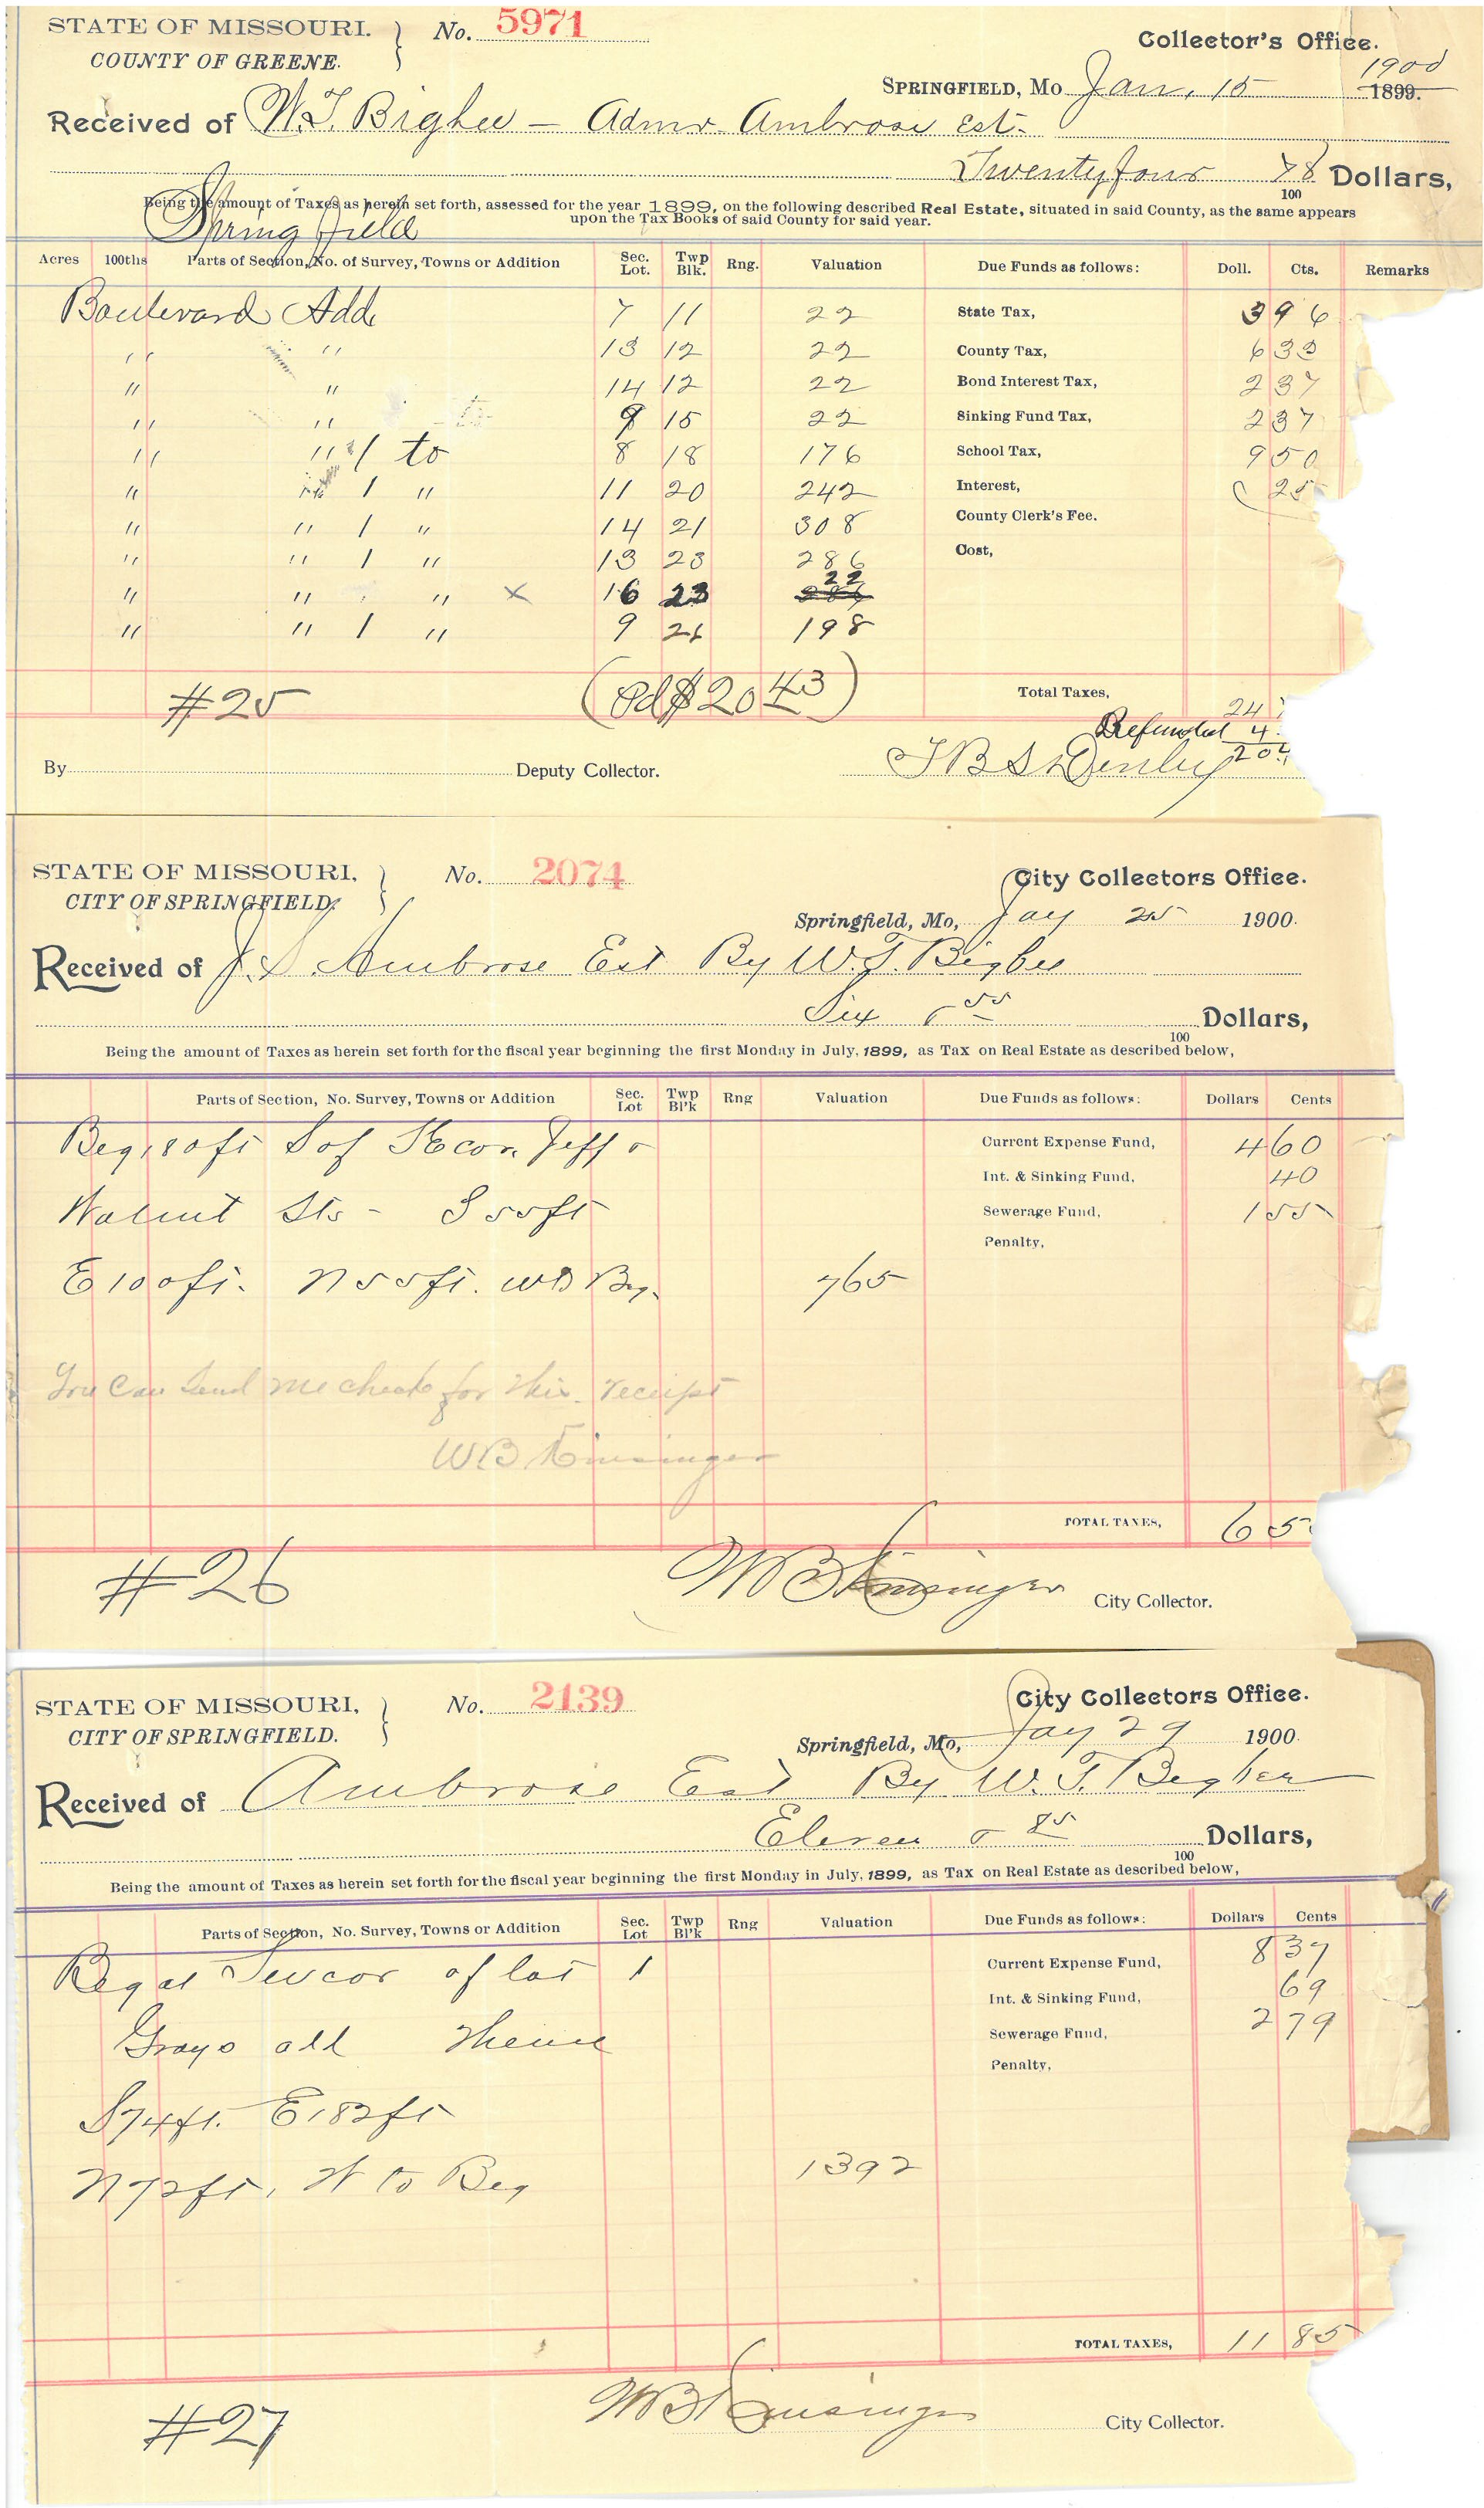 STATE OF MISSOURI. } No. 5971 Collector's Office.
COUNTY OF GREENE.
SPRINGFIELD, Mo Jan. 15 1900 1899.
Received of W.T. Bigbee — Admr Ambrose Est-
Twentyfour 78/100 Dollars,
Being the amount of Taxes as herein set forth, assessed for the year 1899, on the following described Real Estate, situated in said County, as the same appears
upon the Tax Books of said County for said year.
Springfield
Acres 100ths Parts of Section, No. of Survey, Towns or Addition Sec. Lot. Twp Blk. Rng. Valuation Due Funds as follows: Doll. Cts. Remarks
Boulevard Add. 7 11 22 State Tax, 3 96
" " 13 12 22 County Tax, 6 33
" " 14 12 22 Bond Interest Tax, 2 37
" " 9 15 22 Sinking Fund Tax, 2 37
" " 1 to 8 18 176 School Tax, 9 50
" " 1 " 11 20 242 Interest, 25
" " 1 " 14 21 308 County Clerk's Fee.
" " 1 " 13 23 286 Cost,
" " " x 16 23 22
" " 1 " 9 26 198
#25 (Pd $20 43) Total Taxes, 24
Refunded 4
20 4
By Deputy Collector.
STATE OF MISSOURI, } No. 2074 City Collectors Office.
CITY OF SPRINGFIELD,
Springfield, Mo, Jay 25 1900.
Received of J.S. Ambrose Est By W.T. Bigbee
Six 55/100 Dollars,
Being the amount of Taxes as herein set forth for the fiscal year beginning the first Monday in July, 1899, as Tax on Real Estate as described below,
Parts of Section, No. Survey, Towns or Addition Sec. Lot Twp Bl'k Rng Valuation Due Funds as follows: Dollars Cents
Beg 180ft S of SE cor. Jeff & Current Expense Fund, 4 60
Int. & Sinking Fund, 40
Walnut Sts - S 55ft Sewerage Fund, 1 55
Penalty,
E 100ft. N 55ft. W to Beg. 765
You Can Send me check for this receipt
WB Kinsinger
TOTAL TAXES, 6 5
#26 WB Kinsinger City Collector.
STATE OF MISSOURI, } No. 2139 City Collectors Office.
CITY OF SPRINGFIELD.
Springfield, Mo, Jay 29 1900
Received of Ambrose Est By W.T. Bigbee
Eleven & 85/100 Dollars,
Being the amount of Taxes as herein set forth for the fiscal year beginning the first Monday in July, 1899, as Tax on Real Estate as described below,
Parts of Section, No. Survey, Towns or Addition Sec. Lot Twp Bl'k Rng Valuation Due Funds as follows: Dollars Cents
Beg at SW cor of lot 1 Current Expense Fund, 8 37
Int. & Sinking Fund, 69
Grays add Thence Sewerage Fund, 2 79
Penalty,
S 74ft. E 182ft
N 72ft, W to Beg 1392
TOTAL TAXES, 11 85
#27 WB Kinsinger City Collector.